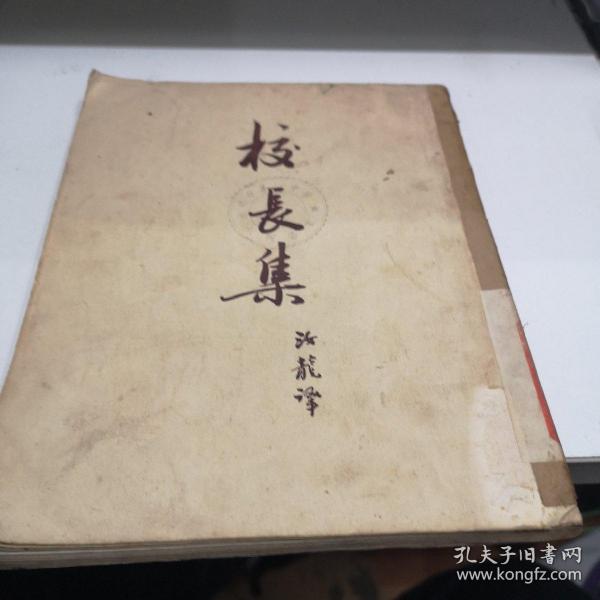 校長集
汝龍譯
孔夫子旧書网
www.kongfz.com